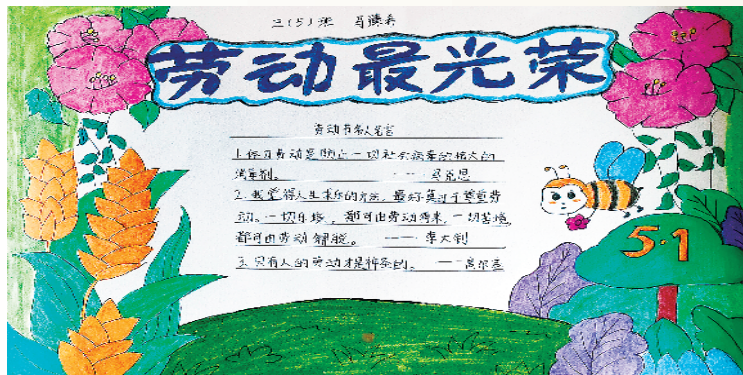 三(5)班 马
劳动最光荣
劳动节名人名言
1.体力劳动是防止一切社会病毒的伟大的
消毒剂。——马克思
2.我觉得人生求乐的方法,最好莫过于尊重劳
动。一切乐境,都可由劳动得来,一切苦境,
都可由劳动解脱。——李大钊
3.只有人的劳动才是神圣的。——高尔基
5·1